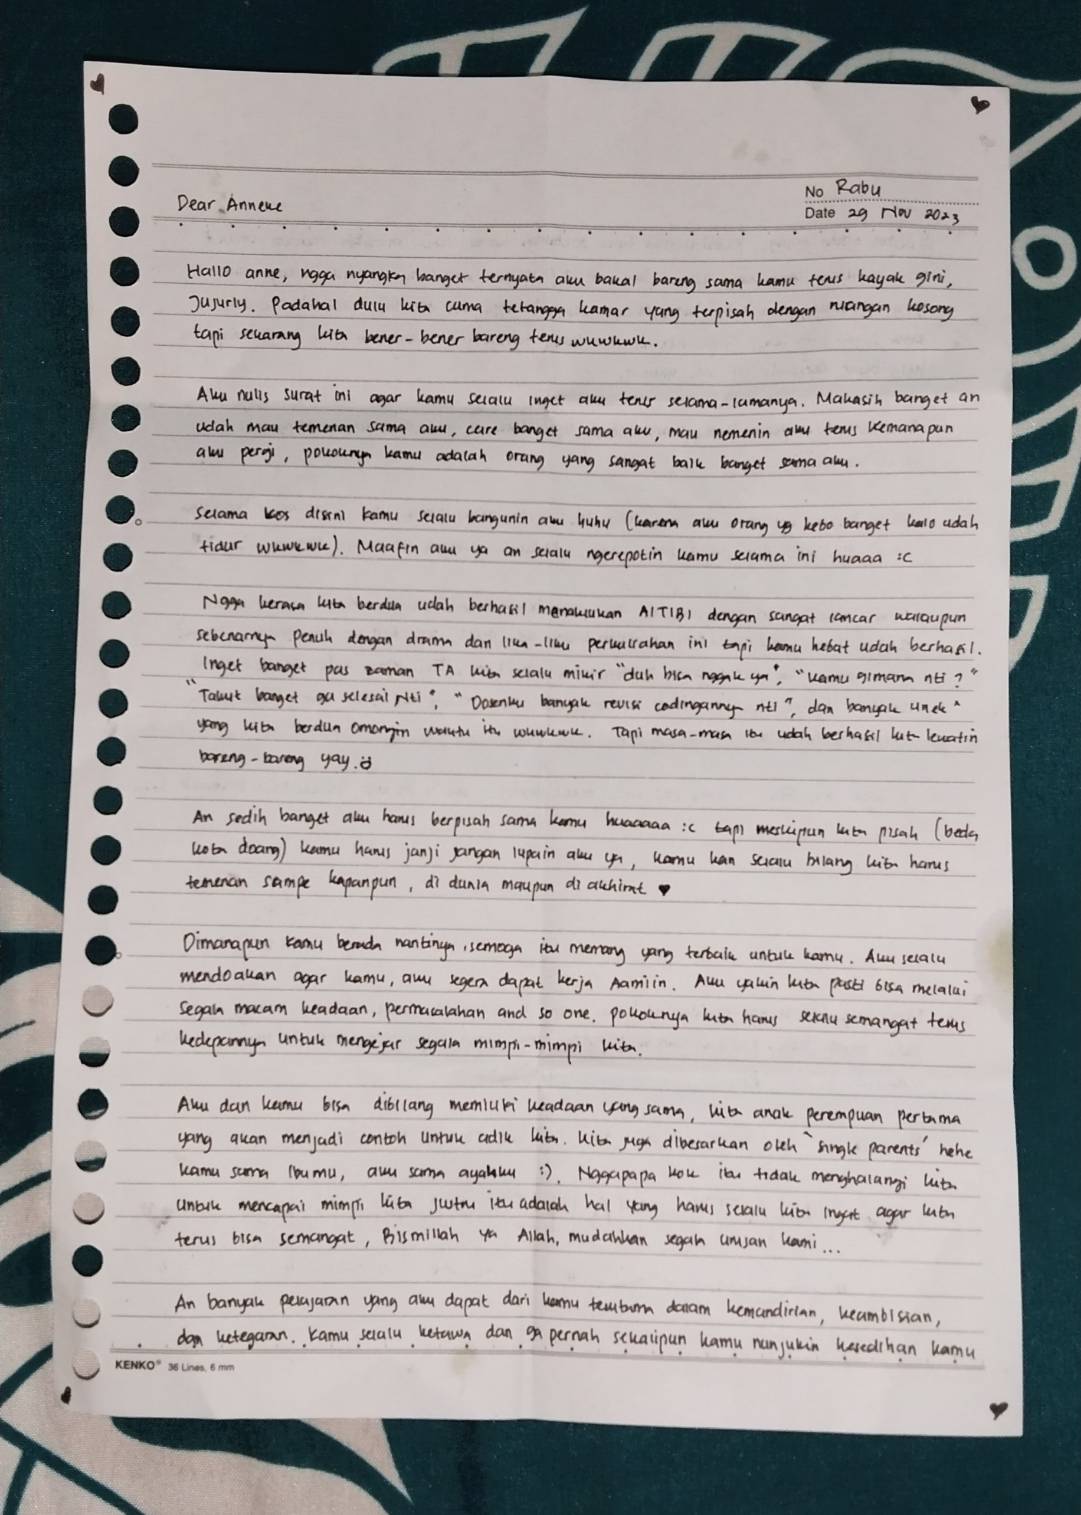 No Rabu
Dear Anneke
Date 29 Nov 2023
Hallo anne, ngga nyangka banget ternyata aku bakal bareng sama kamu terus kayak gini,
Jujurly. Padahal dulu kita cuma tetangga kamar yang terpisah dengan ruangan kosong
tapi sekarang kita bener-bener bareng terus wuwuwu.
Aku nulis surat ini agar kamu selalu inget aku terus selama-lamanya. Makasih banget an
udah mau temenan sama aku, care banget sama aku, mau nemenin aku terus kemanapun
aku pergi, pokoknya kamu adalah orang yang sangat baik banget sama aku.
Selama kos disini kamu selalu bangunin aku huhu (karena aku orang yg kebo banget kalo udah
tidur wuwuwu). Maafin aku ya an selalu ngerepotin kamu selama ini huaaa :c
Ngga kerasa kita berdua udah berhasil menakukan AITIBI dengan sangat lancar walaupun
sebenarnya penuh dengan drama dan liku-liku perkuliahan ini tapi kamu hebat udah berhasil.
Inget banget pas zaman TA kita selalu mikir "duh bisa nggak ya", "kamu gimana nti?"
"Takut banget ga selesai nti", "Dosenku banyak revisi codingannya nti", dan banyak unek"
yang kita berdua omongin waktu itu wuwuwu. Tapi masa-masa itu udah berhasil kita lewatin
bareng-bareng yay.
An sedih banget aku harus berpisah sama kamu huaaaaa :c tapi meskipun kita pisah (beda
kota doang) kamu harus janji jangan lupain aku ya, kamu kan selalu bilang kita harus
temenan sampe kapanpun, di dunia maupun di akhirat ♥
Dimanapun kamu berada nantinya, semoga itu memang yang terbaik untuk kamu. Aku selalu
mendoakan agar kamu, aku segera dapat kerja Aamiin. Aku yakin kita pasti bisa melalui
segala macam keadaan, permasalahan and so one. pokoknya kita harus selalu semangat terus
kedepannya untuk mengejar segala mimpi-mimpi kita.
Aku dan kamu bisa dibilang memiliki keadaan yang sama, kita anak perempuan pertama
yang akan menjadi contoh untuk adik kita. Kita juga dibesarkan oleh "single parents" hehe
kamu sama ibumu, aku sama ayahku :). Nggapapa kok itu tidak menghalangi kita
untuk mencapai mimpi kita justru itu adalah hal yang harus selalu kita ingat agar kita
terus bisa semangat, Bismillah ya Allah, mudahkan segala urusan kami...
An banyak pelajaran yang aku dapat dari kamu terutama dalam kemandirian, keambisian,
dan ketegaran. Kamu selalu ketawa dan ga pernah sekalipun kamu nunjukin kesedihan kamu
KENKO® 36 Lines, 6 mm